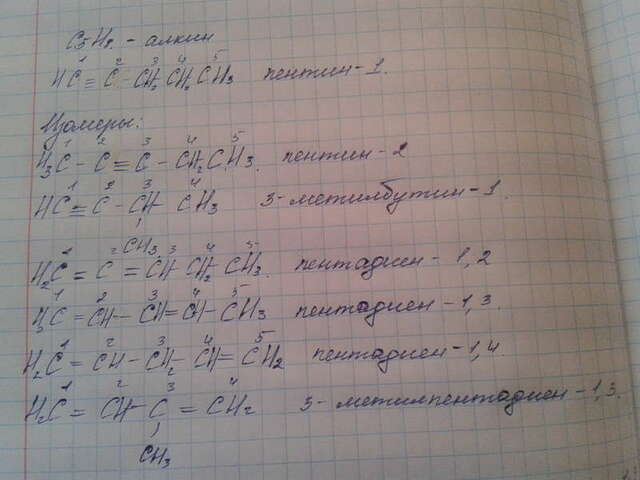 C5H8 - алкин
1 2 3 4 5
HC ≡ C CH2 CH2 CH3 пентин - 1.
Изомеры:
1 2 3 4 5
H3C - C ≡ C - CH2 CH3. пентин - 2
1 2 3 4
HC ≡ C - CH CH3 3 - метилбутин - 1.
CH3
1 2 3 4 5
H2C = C = CH CH2 CH3. пентадиен - 1,2
1 2 3 4 5
H3C = CH - CH = CH - CH3 пентадиен - 1,3.
1 2 3 4 5
H2C = CH - CH2 - CH = CH2 пентадиен - 1,4.
1 2 3 4
H2C = CH - C = CH2 3 - метилпентадиен - 1,3.
CH3